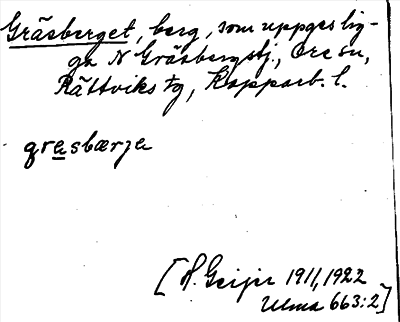 Gräsberget, berg, som uppges lig-
ga N Gräsbergstj., Ore sn,
Rättviks tg, Kopparb. l.
grasbærja
[H. Geijer 1911, 1922
Ulma 663:2]